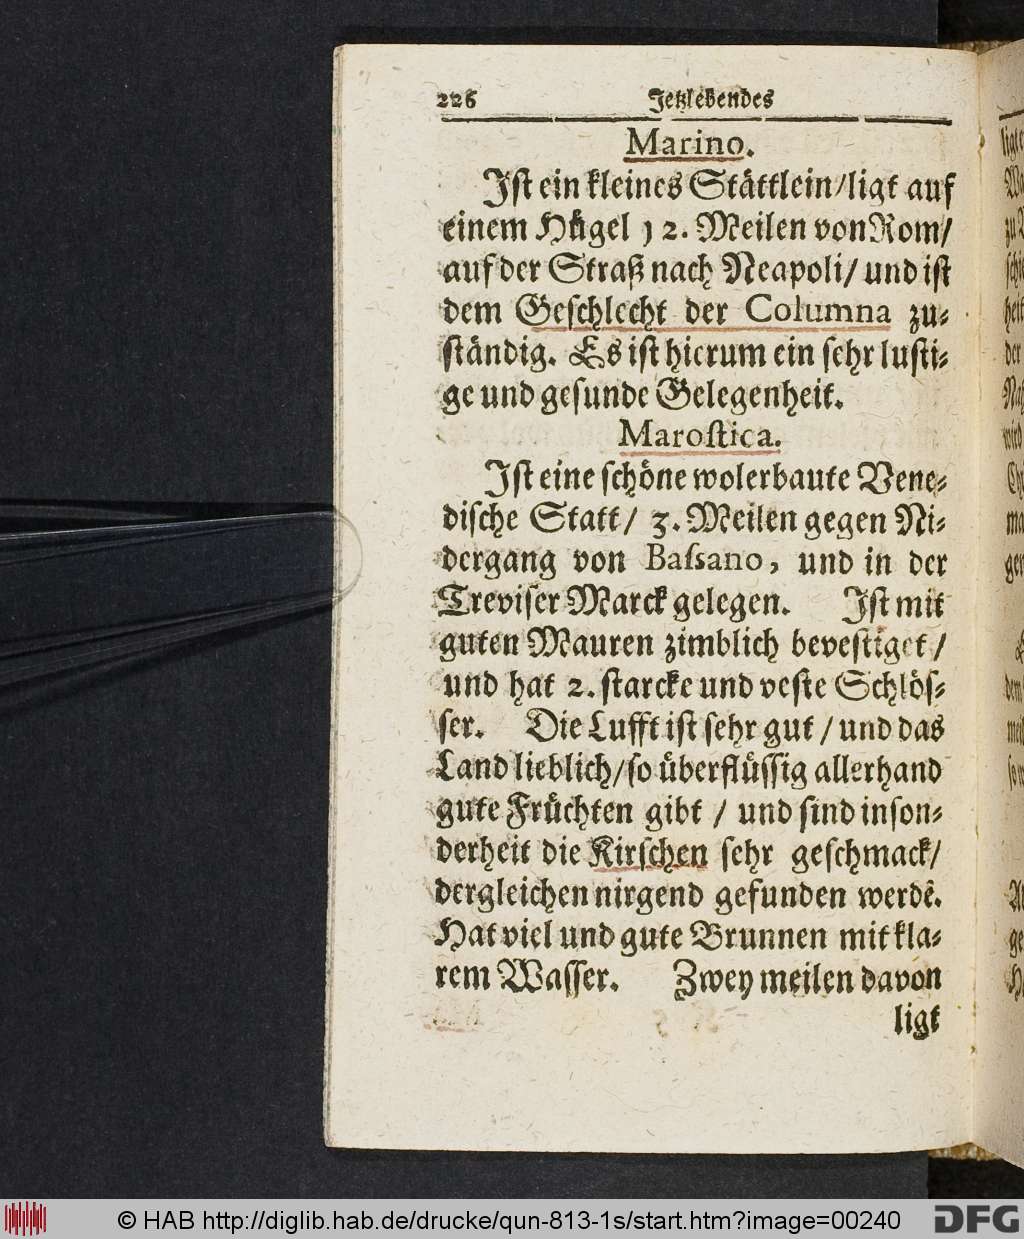 226 Jetzlebendes
Marino.
Jst ein kleines Stättlein/ligt auf
einem Hügel 12. Meilen von Rom/
auf der Straß nach Neapoli/ und ist
dem Geschlecht der Columna zu⸗
ständig. Es ist hierum ein sehr lusti⸗
ge und gesunde Gelegenheit.
Marostica.
Jst eine schöne wolerbaute Vene⸗
dische Statt/ 3. Meilen gegen Ni⸗
dergang von Bassano, und in der
Treviser Marck gelegen. Jst mit
guten Mauren zimblich bevestiget/
und hat 2. starcke und veste Schlös⸗
ser. Die Lufft ist sehr gut / und das
Land lieblich/so überflüssig allerhand
gute Früchten gibt / und sind inson⸗
derheit die Kirschen sehr geschmack/
dergleichen nirgend gefunden werdẽ.
Hat viel und gute Brunnen mit kla⸗
rem Wasser. Zwey meilen davon
ligt
© HAB http://diglib.hab.de/drucke/qun-813-1s/start.htm?image=00240
DFG